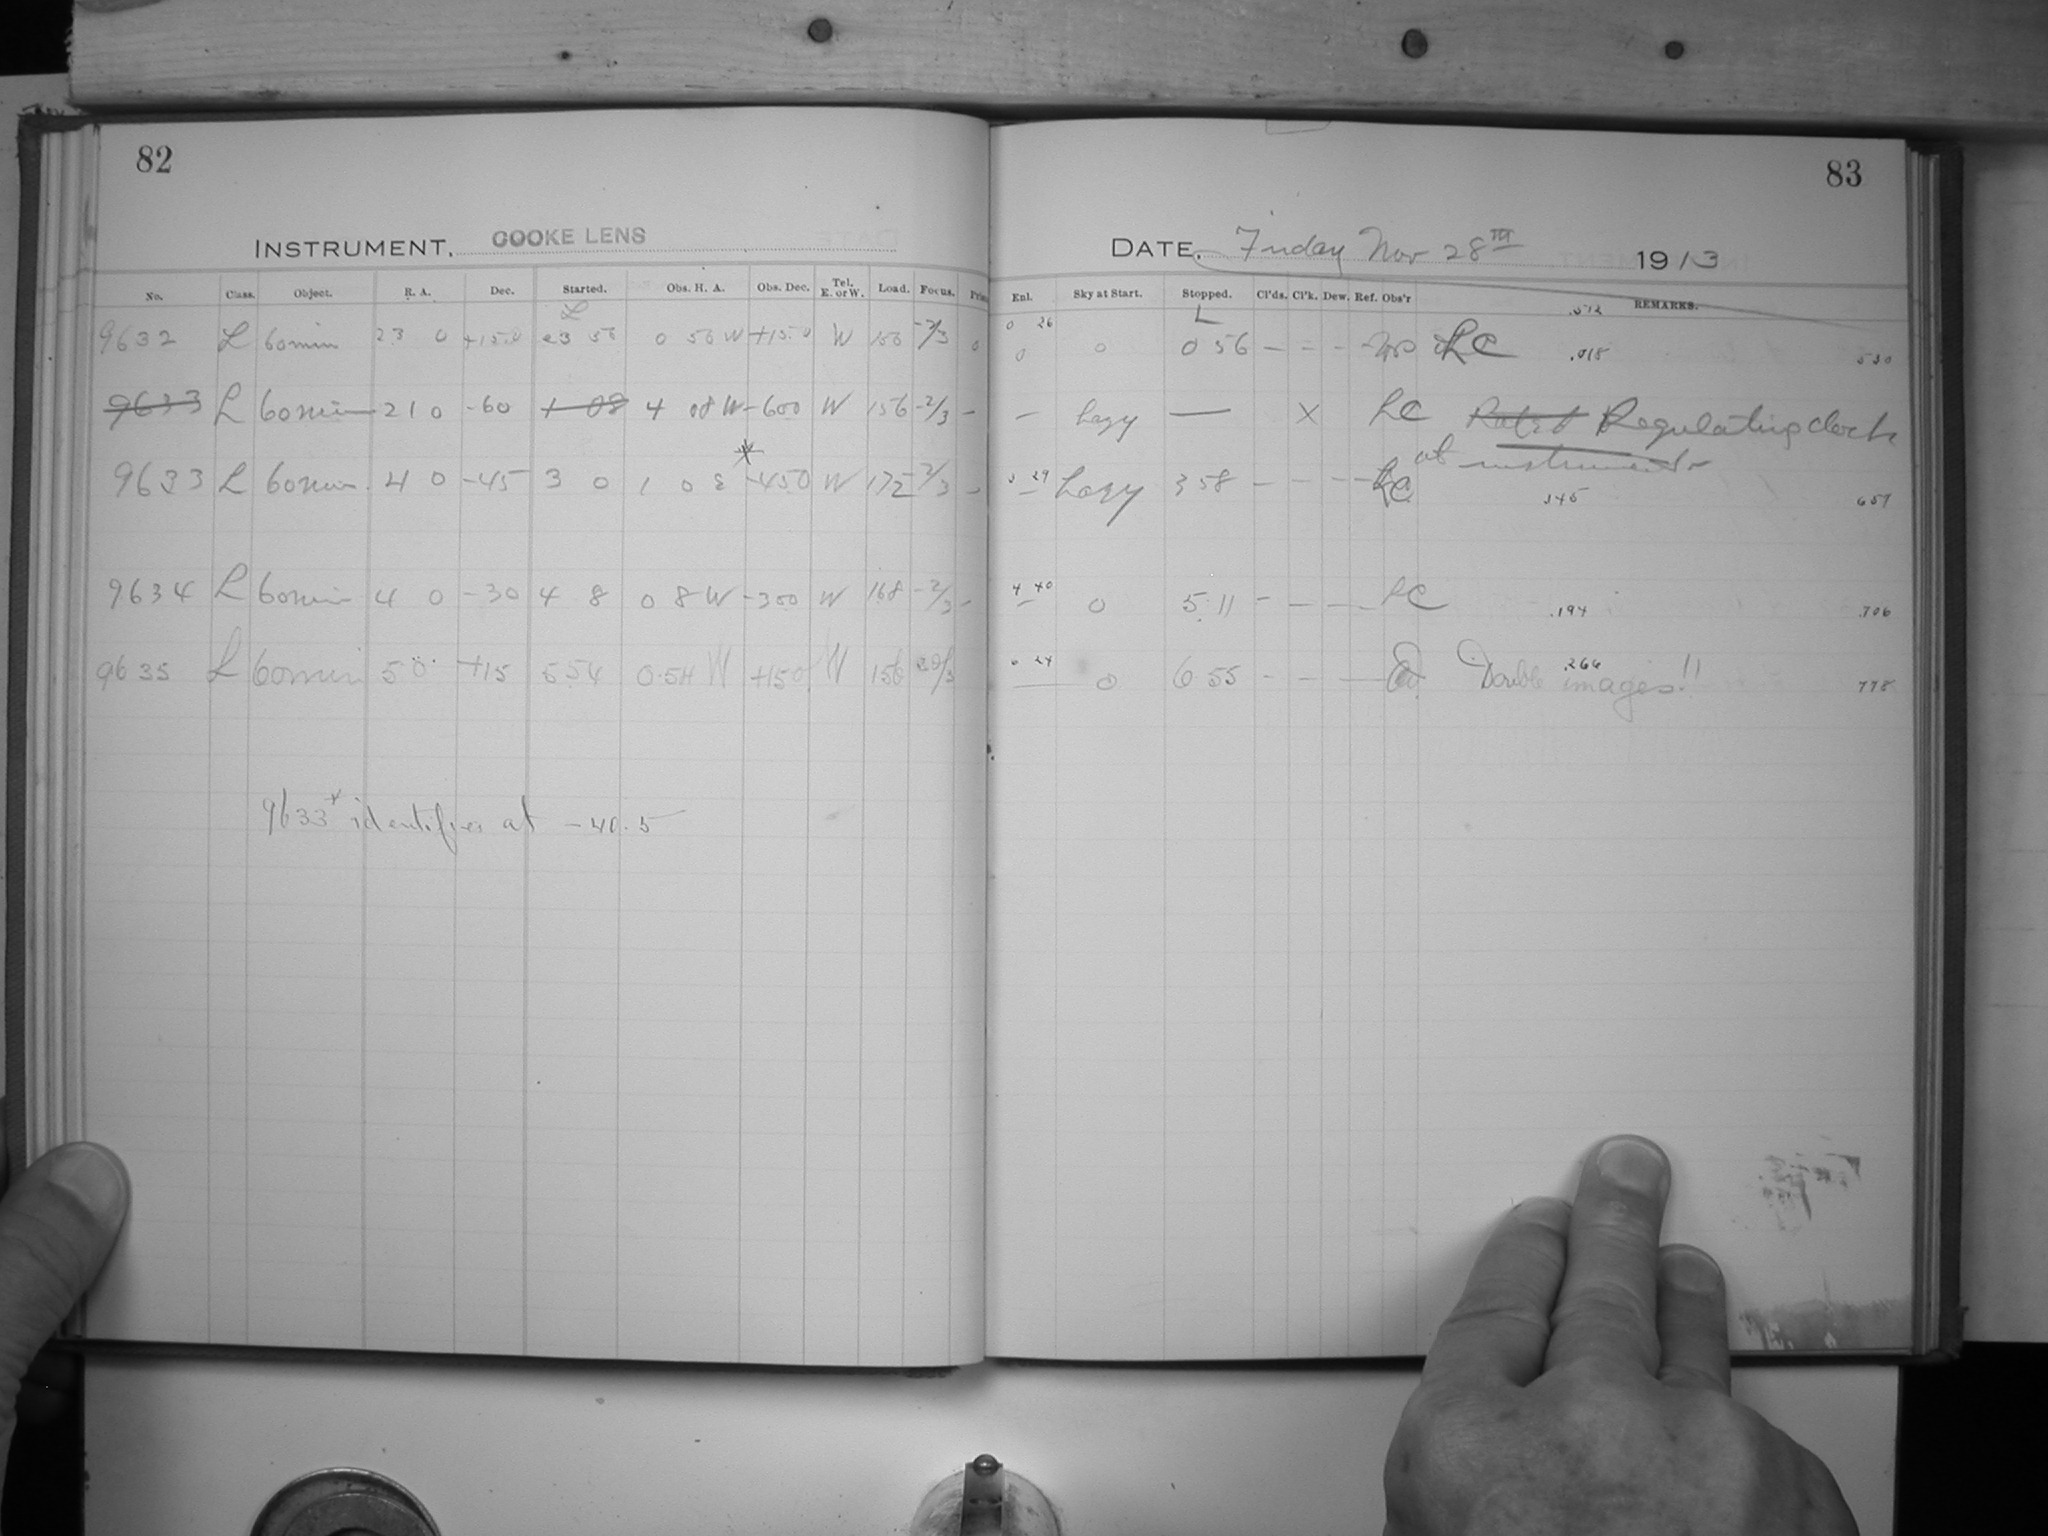 82
INSTRUMENT. COOKE LENS
No. Class. Object. R. A. Dec. Started. Obs. H. A. Obs. Dec. Tel. E. or W. Load. Focus.
L
9632 L 60min 23 0 +15.0 23 56 0 56 W +15.0 W 156 -2/3 0
9633 L 60min 21 0 -60 1 08 4 08 W -600 W 156 -2/3 -
*
9633 L 60min 4 0 -45 3 0 1 0 E -450 W 172 -2/3 -
9634 L 60min 4 0 -30 4 8 0 8 W -300 W 168 -2/3 -
9635 L 60min 5 0 +15 5 54 0.54 W +150 W 156
9633* identifies at -40.5
83
DATE. Friday Nov 28TH 1913
Enl. Sky at Start. Stopped. Cl'ds. Cl'k. Dew. Ref. Obs'r REMARKS.
L .512
0 26
0 0 0 56 - - - - LC .018 530
- hazy - x LC Regulating clock
at instrument
3 29
- hazy 3 58 - - - - LC .145 657
4 40
- 0 5 11 - - - - LC .194 .706
6 24
- 0 6 55 - - - - Double images!! .266 778